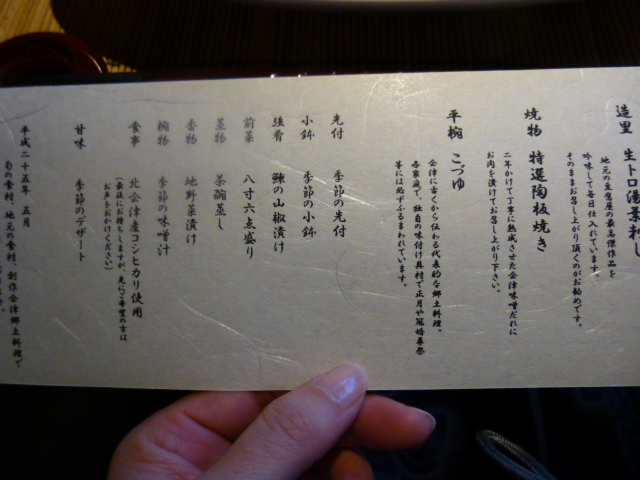 造里 生トロ湯葉刺し
地元の豆腐屋の最高傑作品を
吟味して毎日仕入れています。
そのままお召し上がり頂くのがお勧めです。
焼物 特選陶板焼き
二年かけて丁寧に熟成させた会津味噌だれに
お肉を漬けてお召し上がり下さい。
平椀 こづゆ
会津に古くから伝わる代表的な郷土料理。
各家庭で独自の味付け具材で正月や冠婚葬祭
等には必ずふるまわれています。
先付 季節の先付
小鉢 季節の小鉢
強肴 鰊の山椒漬け
前菜 八寸六点盛り
蒸物 茶碗蒸し
香物 地野菜漬け
椀物 季節の味噌汁
食事 北会津産コシヒカリ使用
(最後にお持ちしますが、先にご希望の方は
お声しおかけください)
甘味 季節のデザート
平成二十五年 五月
旬の食材、地元の食材、創作会津郷土料理で